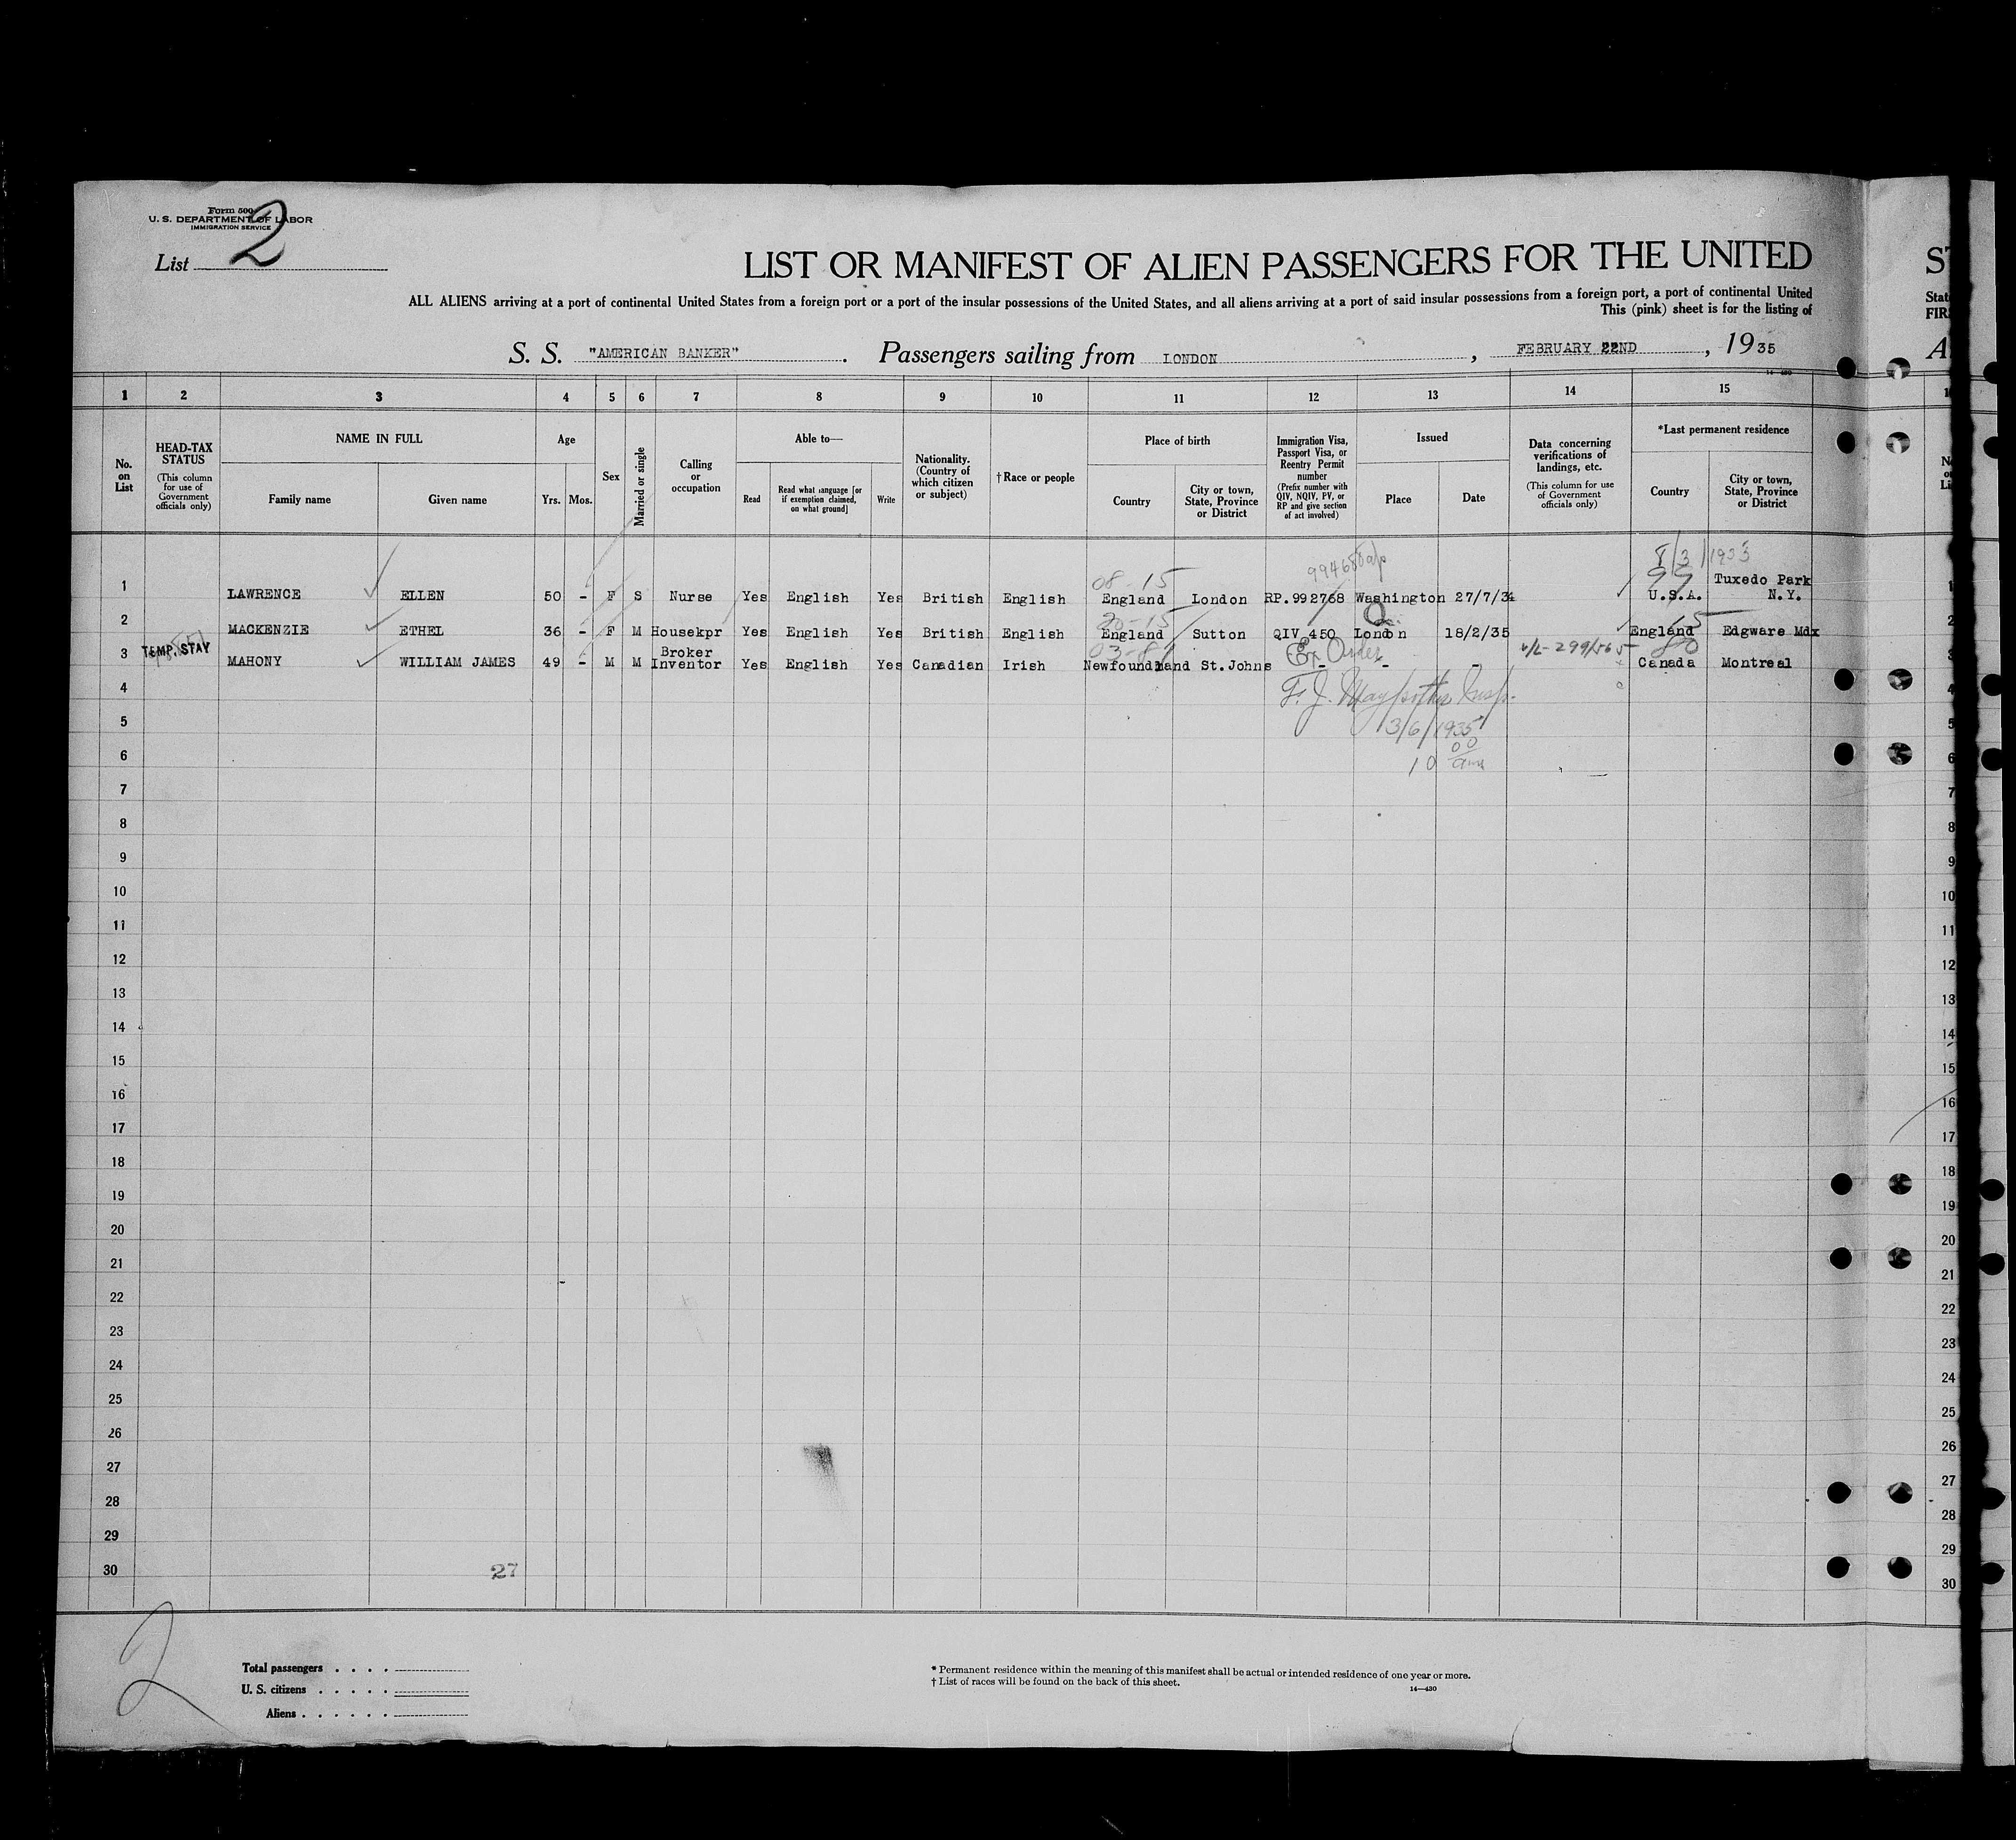 Form 500
U. S. DEPARTMENT OF LABOR
IMMIGRATION SERVICE
List 2
LIST OR MANIFEST OF ALIEN PASSENGERS FOR THE UNITED
ALL ALIENS arriving at a port of continental United States from a foreign port or a port of the insular possessions of the United States, and all aliens arriving at a port of said insular possessions from a foreign port, a port of continental United
This (pink) sheet is for the listing of
S. S. "AMERICAN BANKER" . Passengers sailing from LONDON , FEBRUARY 22ND , 19 35
1 2 3 4 5 6 7 8 9 10 11 12 13 14 15
No. on List
HEAD-TAX STATUS
(This column for use of Government officials only)
NAME IN FULL
Family name Given name
Age
Yrs. Mos.
Sex
Married or single
Calling or occupation
Able to—
Read
Read what language [or if exemption claimed, on what ground]
Write
Nationality. (Country of which citizen or subject)
†Race or people
Place of birth
Country
City or town, State, Province or District
Immigration Visa, Passport Visa, or Reentry Permit number
(Prefix number with QIV, NQIV, PV, or RP and give section of act involved)
Issued
Place Date
Data concerning verifications of landings, etc.
(This column for use of Government officials only)
*Last permanent residence
Country
City or town, State, Province or District
08-15
1 LAWRENCE ELLEN 50 - F S Nurse Yes English Yes British English England London RP.992768 Washington 27/7/34 U.S.A. Tuxedo Park N.Y.
20-15 15
2 MACKENZIE ETHEL 36 - F M Housekpr Yes English Yes British English England Sutton QIV 450 London 18/2/35 England Edgware Mdx
3 TEMP. STAY MAHONY WILLIAM JAMES 49 - M M Broker Inventor Yes English Yes Canadian Irish Newfoundland St.Johns - - - Canada Montreal
3/6/1935
10 00 am
4
5
6
7
8
9
10
11
12
13
14
15
16
17
18
19
20
21
22
23
24
25
26
27
28
29
30
27
2
Total passengers . . . .
U. S. citizens . . . . .
Aliens . . . . . .
* Permanent residence within the meaning of this manifest shall be actual or intended residence of one year or more.
† List of races will be found on the back of this sheet.
14—430